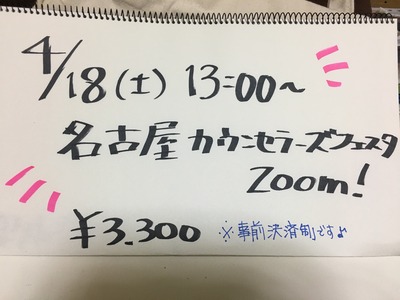 4/18(土) 13:00〜
名古屋カウンセラーズフェスタ
Zoom!
¥3.300 ※事前決済制です♪